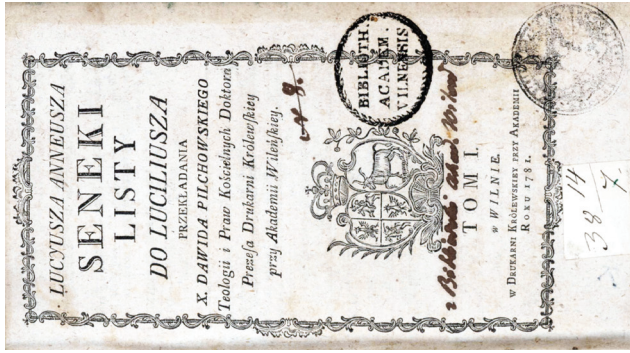 LUCYUSZA ANNEUSZA
SENEKI
LISTY
DO LUCILIUSZA
PRZEKŁADANIA
X. DAWIDA PILCHOWSKIEGO
Teologii i Praw Kościelnych Doktora
Prezeſa Drukarni Królewſkiey
przy Akademii Wileńſkiey.
BIBLIOTH.
ACADEM.
VILNENSIS
TOM I.
w WILNIE,
w DRUKARNI KRÓLEWSKIEY PRZY AKADEMII
ROKU 1781.
14
38
7.